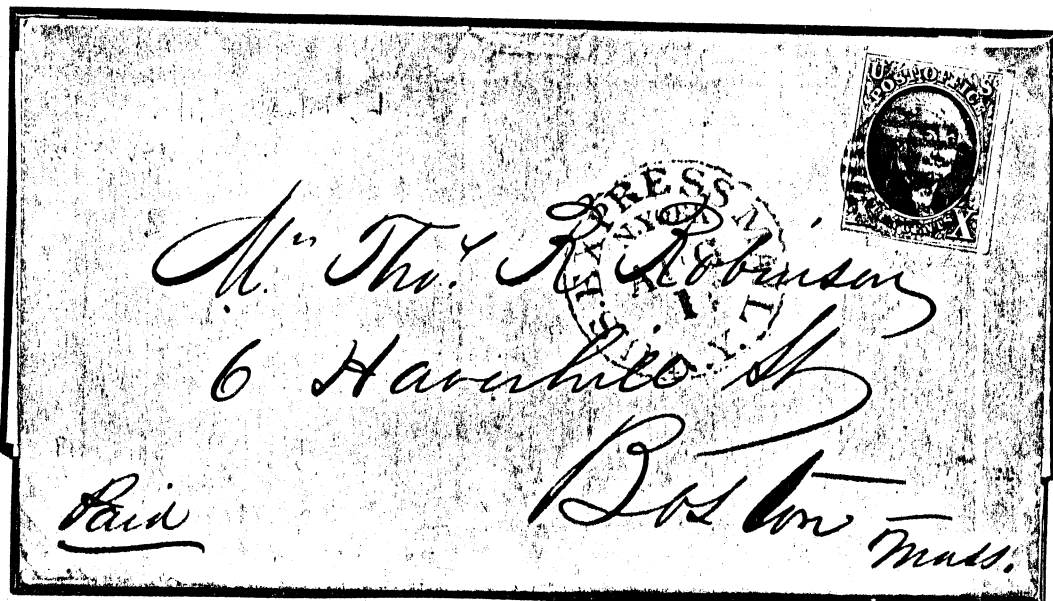 U S
POST OFFICE
X
U.S. EXPRESS MAIL
N. YORK
1
N.Y.
Mr Thos. R. Robinson
6 Haverhill St
Boston
Mass.
Paid